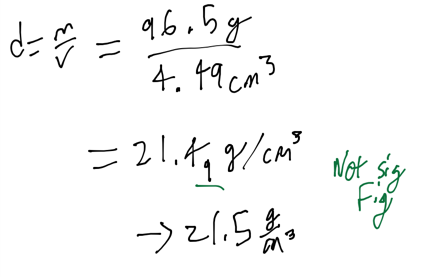 d = m/v = 96.5 g / 4.49 cm³
= 21.49 g/cm³
Not sig
Fig
→ 21.5 g/cm³